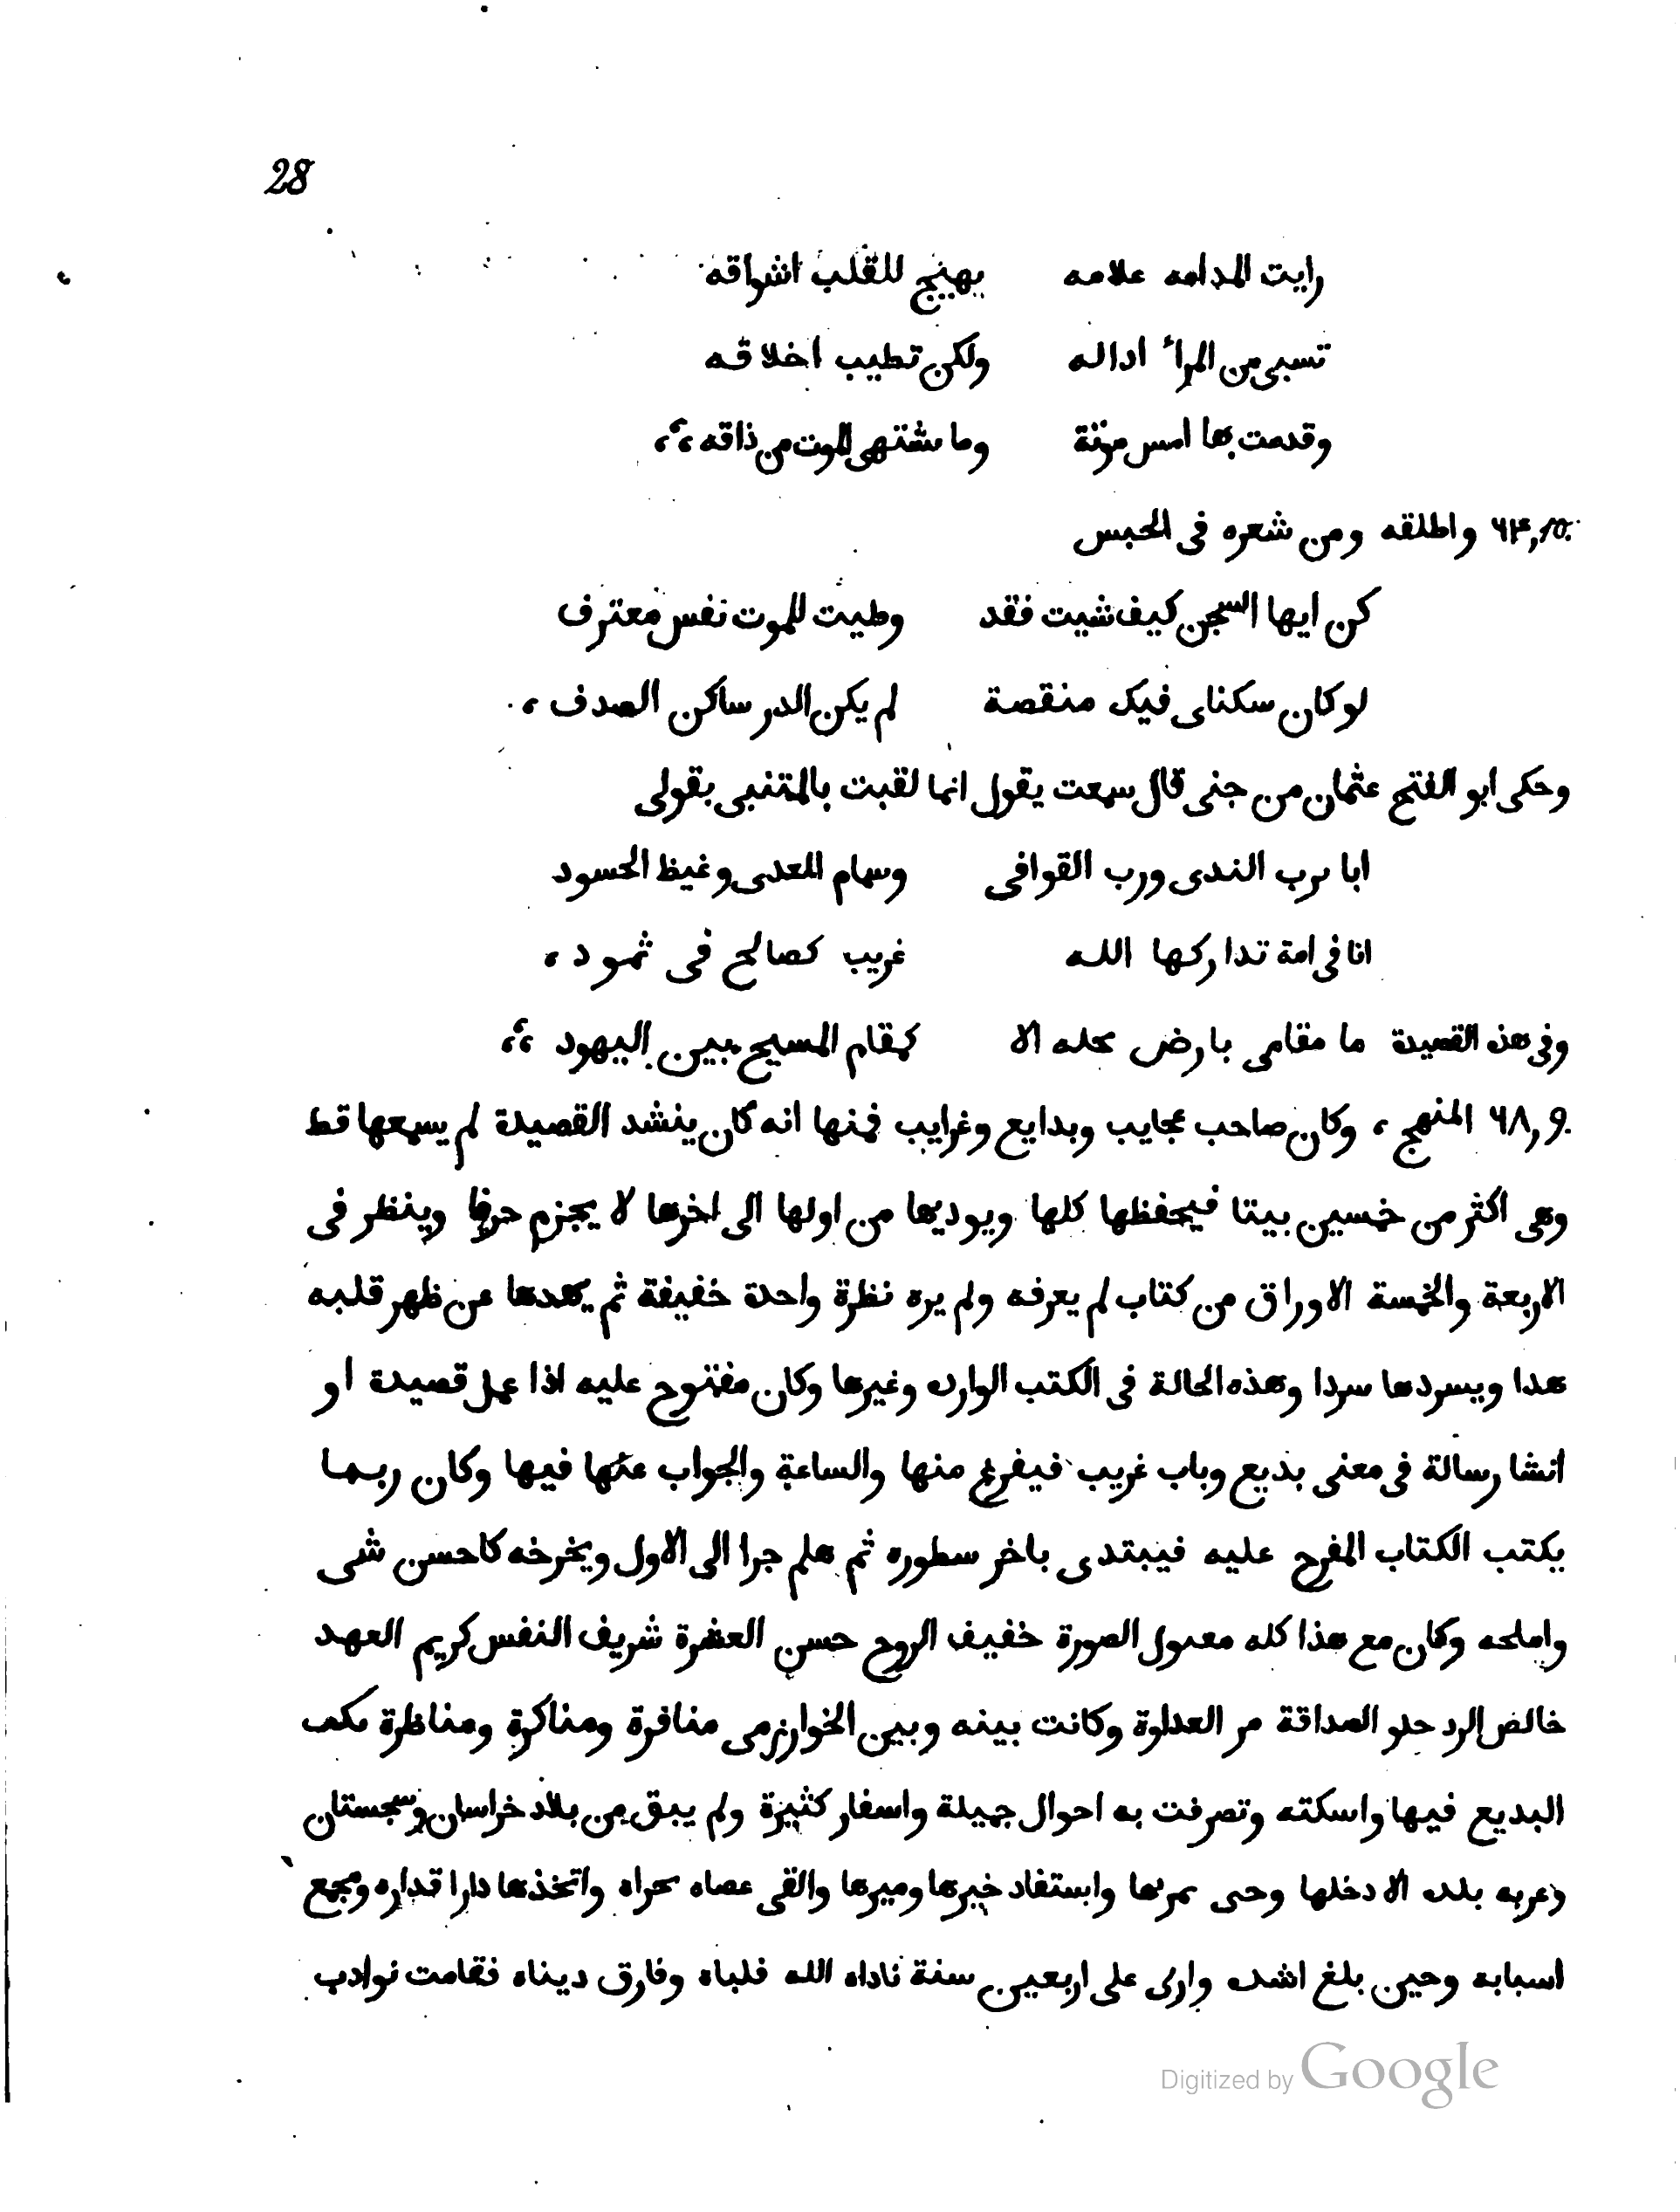 28
رايت المدامه علامه يهيج للقلب اشواقه
تسبى من المرأ اداله ولكن تطيب اخلاقه
وقدمت بها امس موتة وما ىشتهى الموت من ذاقه ،،
واطلقه ومن شعره فى الحبس
كن ايها السجن كيف شيت فقد وطيت للموت نفس معترف
لو كان سكناى فيك منقصة لم يكن الدر ساكن الصدف ،
وحكى ابو الفتح عثمان من جنى قال سمعت يقول انما لقبت بالمتنبى بقولى
ابا ىرب الندى ورب القوافى وسهام العدى وغيظ الحسود
انا فى امة تداركها الله غريب كصالح فى ثمود ،
وفى هذه القصيدة ما مقامى بارض نحله الا كمقام المسيح بين اليهود ،،
٩,٦٨ المنهج ، وكان صاحب عجايب وبدايع وغرايب فمنها انه كان ينشد القصيدة لم يسمعها قط
وهى اكثر من خمسين بيتا فيحفظها كلها ويوديها من اولها الى اخرها لا يجزم حرفا وينظر فى
الاربعة والخمسة الاوراق من كتاب لم يعرفه ولم يره نظرة واحدة خفيفة ثم يهدها عن ظهر قلبه
هدا ويسردها سردا وهذه الحالة فى الكتب الوارده وغيرها وكان مفتوح عليه اذا عمل قصيدة او
انشا رسالة فى معنى بديع وباب غريب فيفرغ منها والساعة والجواب عنها فيها وكان ربما
يكتب الكتاب المفرح عليه فيبتدى باخر سطوره ثم هلم جرا الى الاول ويخرخه كاحسن شى
واملحه وكان مع هذا كله معبول الصورة خفيف الروح حسن العشرة شريف النفس كريم العهد
خالص الرد حلو الصداقة مر العداوة وكانت بينه وبين الخوارزمى منافرة ومناكرة ومناظرة ىكىت
البديع فيها واسكته وتصرفت به احوال جميلة واسفار كثيرة ولم يبق من بلاد خراسان وسجستان
وعربه بلده الا دخلها وحىى ىمرتها وابستفاد خيرها وميرها والقى عصاه ىحراه واتخذها دارا قداره ومجمع
اسبابه وحين بلغ اشده واربى على اربعين سنة ناداه الله فلباه وفارق ديناه فقامت نوادب
Digitized by Google